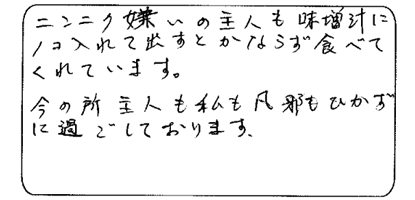 ニンニク嫌いの主人も味増汁に
1コ入れて出すとかならず食べて
くれています。
今の所主人も私も風邪もひかず
に過ごしております。